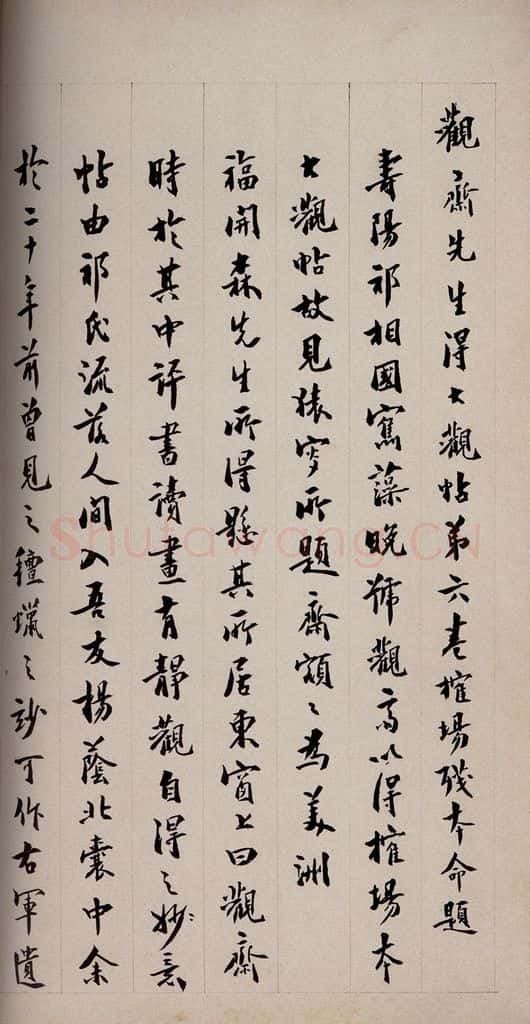 觀齋先生得大觀帖第六卷榷場殘本命題
壽陽祁相國寯藻晚號觀齋以得榷場本
大觀帖故見猿叟所題齋額々為美洲
福開森先生所得懸其所居東窗上曰觀齋
時於其中評書讀畫有靜觀自得之妙意
帖由祁氏流落人間入吾友楊蔭北囊中余
於二十年前曾見之氊蠟之妙可作右軍遺
Shufawang.CN